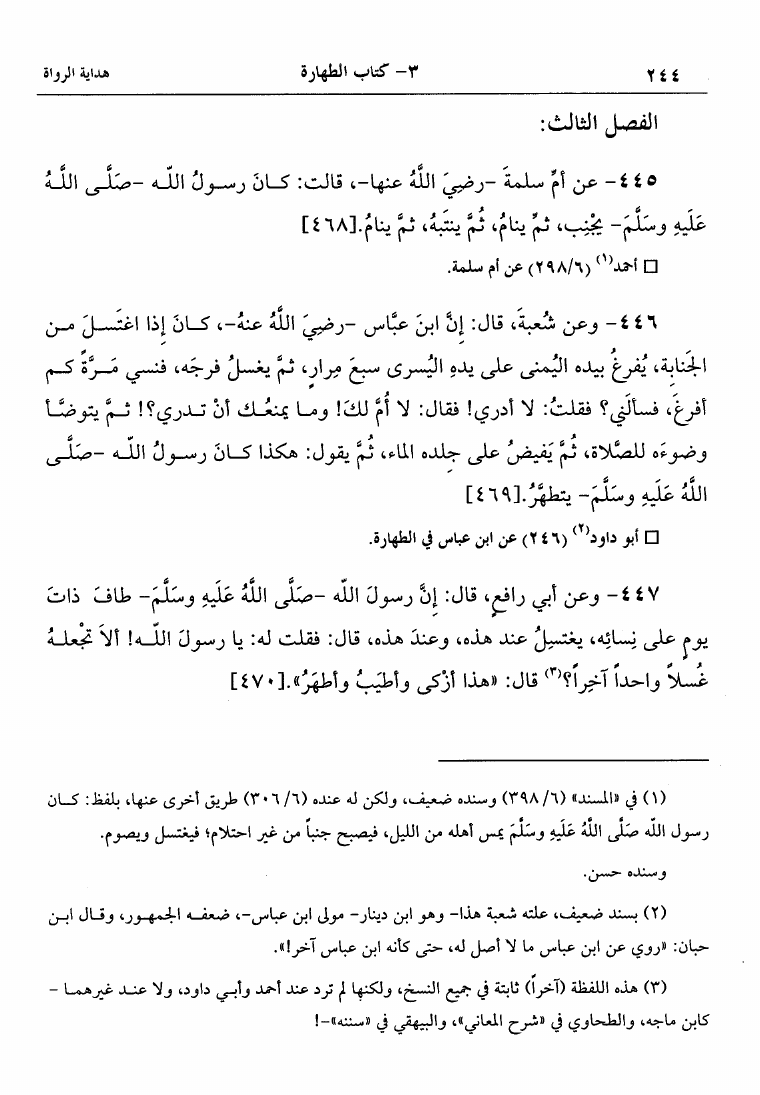 ٢٤٤ ٣- كتاب الطهارة هداية الرواة
الفصل الثالث:
٤٤٥- عن أمِّ سلمةَ -رضيَ اللَّهُ عنها-، قالت: كـانَ رسـولُ اللّه -صَلَّى اللَّهُ
عَلَيهِ وسَلَّمَ- يجْنِب، ثمِّ ينامُ، ثُمَّ ينتَبهُ، ثمَّ ينامُ.[٤٦٨]
□ أحمد(١) (٢٩٨/٦) عن أم سلمة.
٤٤٦- وعن شُعبةَ، قال: إنَّ ابنَ عبَّاس -رضيَ اللَّهُ عنهُ-، كـانَ إذا اغتَسـلَ مـن
الجَنابةِ، يُفرغُ بيده اليُمنى على يدهِ اليُسرى سبعَ مِرارٍ، ثمَّ يغسلُ فرجَه، فنسي مَـرَّةً كـم
أفرغَ، فسألَني؟ فقلتُ: لا أدري! فقال: لا أُمَّ لكَ! ومـا يمنعُـك أنْ تـدري؟! ثـمَّ يتوضَّـأ
وضوءَه للصَّلاة، ثُمَّ يَفيضُ على جِلده الماء، ثُمَّ يقول: هكذا كـانَ رسـولُ اللّـه -صَلَّـى
اللَّهُ عَلَيهِ وسَلَّمَ- يتطهَّرُ.[٤٦٩]
□ أبو داود(٢) (٢٤٦) عن ابن عباس في الطهارة.
٤٤٧- وعن أبي رافعٍ، قال: إنَّ رسولَ اللّه -صَلَّى اللَّهُ عَلَيهِ وسَلَّمَ- طافَ ذاتَ
يومٍ على نِسائِه، يغتسِلُ عند هذه، وعندَ هذه، قال: فقلت له: يا رسولَ اللّـه! ألاَ تجْعلـهُ
غُسلاً واحداً آخِراً؟(٣) قال: «هذا أزْكى وأطيَبُ وأطهَرُ».[٤٧٠]
(١) في «المسند» (٣٩٨/٦) وسنده ضعيف، ولكن له عنده (٣٠٦/٦) طريق أخرى عنها، بلفظ: كـان
رسول اللّه صَلَّى اللَّهُ عَلَيهِ وسَلَّمَ يمس أهله من الليل، فيصبح جنباً من غير احتلام؛ فيغتسل ويصوم.
وسنده حسن.
(٢) بسند ضعيف، علته شعبة هذا- وهو ابن دينار- مولى ابن عباس-، ضعفـه الجمهـور، وقـال ابـن
حبان: «روي عن ابن عباس ما لا أصل له، حتى كأنه ابن عباس آخر!».
(٣) هذه اللفظة (آخراً) ثابتة في جميع النسخ، ولكنها لم ترد عند أحمد وأبـي داود، ولا عنـد غيرهمـا -
كابن ماجه، والطحاوي في «شرح المعاني»، والبيهقي في «سننه»-!